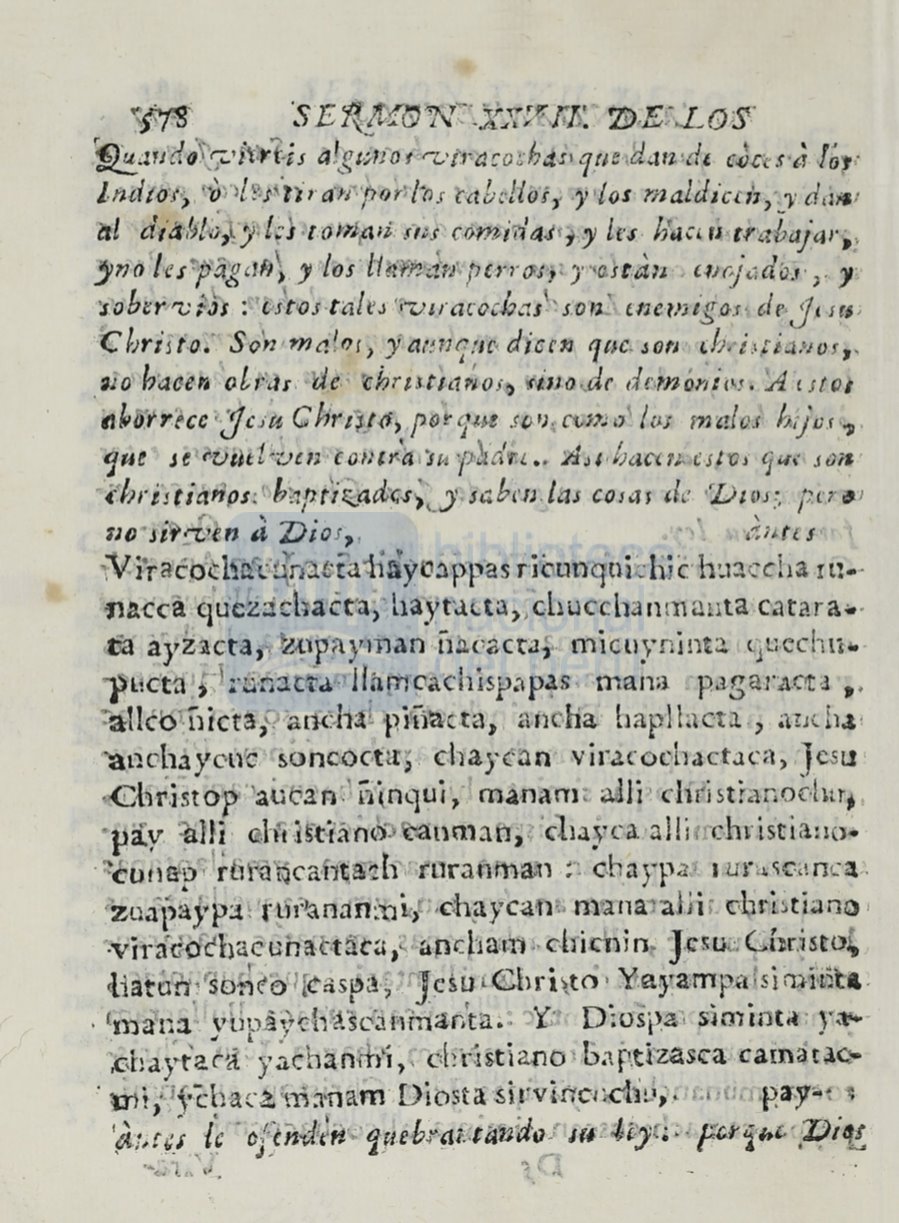 578 SERMON XXVII. DE LOS
Quando viereis algunos viracochas que dan de coces à los
Indios, ò les tiran por los cabellos, y los maldicen, y dan
al diablo, y les toman sus comidas, y les hacen trabajar,
y no les pagan, y los llaman perros, y están enojados, y
sobervios: estos tales viracochas son enemigos de Jesu
Christo. Son malos, y aunque dicen que son christianos,
no hacen obras de christianos, sino de demonios. A estos
aborrece Jesu Christo, porque son como los malos hijos,
que se vuelven contra su padre.. Asi hacen estos que son
christianos baptizados, y saben las cosas de Dios; pero
no sirven à Dios, àntes
Viracochacunacta haycappas ricunqui chic huaccha ru-
nacca quezachacta, haytacta, chucchanmanta catara-
ta ayzacta, zupayman ñacacta, micuyninta quechu-
pucta, runacta llamcachispapas mana pagaracta,
allco ñicta, ancha piñacta, ancha hapllacta, ancha
anchaycuc soncocta, chaycan viracochactaca, Jesu
Christop aucan ñinqui, manam alli christianochu,
pay alli christiano canman, chayca alli christiano-
cunap rurancantach ruranman: chaypa rurascanca
zuapaypa rurananmi, chaycan mana alli christiano
viracochacunactaca, ancham chicnin Jesu Christo,
hatun sonco caspa, Jesu Christo Yayampa siminta
mana yupaychascanmanta. Y Diospa siminta ya-
chaytaca yachanmi, christiano baptizasca camatac-
mi, ychaca manam Diosta sirvincuchu, pay-
àntes le ofenden quebrantando su ley: porque Dios